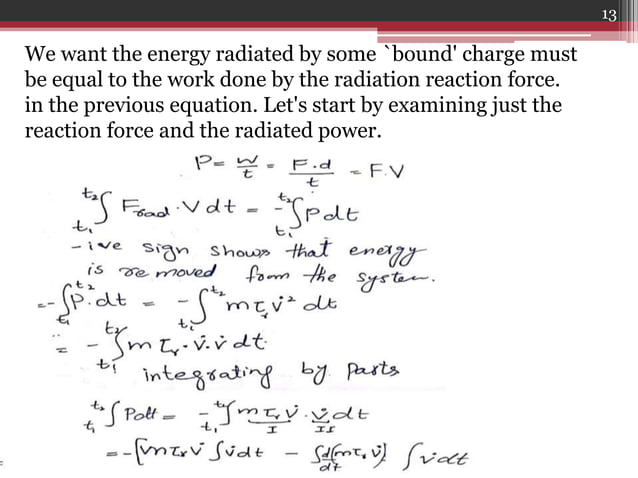 13
We want the energy radiated by some `bound' charge must
be equal to the work done by the radiation reaction force.
in the previous equation. Let's start by examining just the
reaction force and the radiated power.
P = W/t = F.d/t = F.V
t₁∫t₂ Frad . V dt = -t₁∫t₂ P dt
-ive sign shows that energy
is removed from the system.
= -t₁∫t₂ P. dt = -t₁∫t₂ m τr v̇² dt
= -t₁∫t₂ m τr . v̇. v̇ dt.
integrating by parts
t₁∫t₂ Pdt = -t₁∫t₂ m τr v̇ . v̇ dt
I II
= -[m τr v̇ ∫v̇ dt - ∫d/dt(m τr v̇) ∫v̇ dt